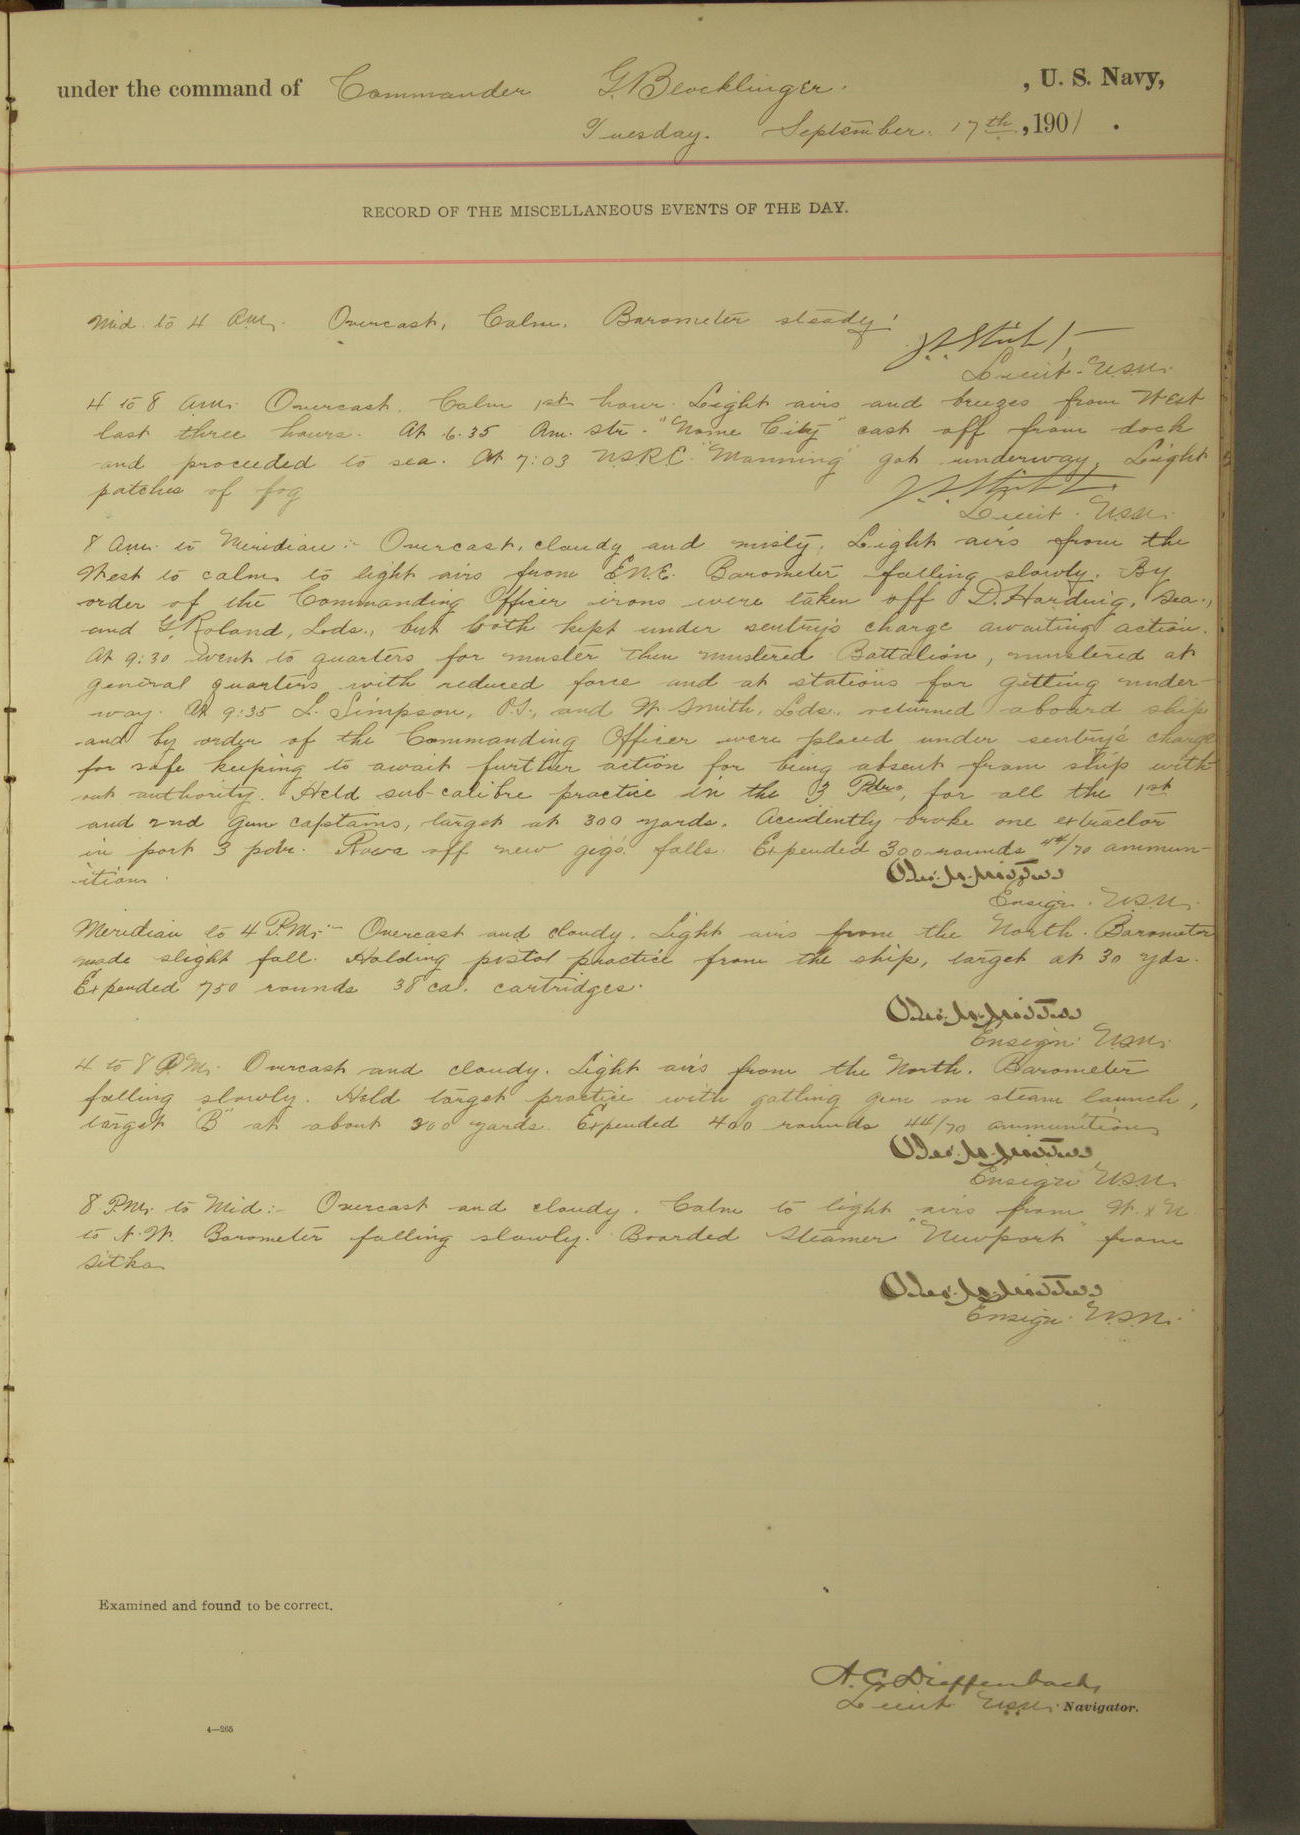 under the command of Commander G. Blocklinger. , U. S. Navy,
Tuesday. September. 17th, 1901.
RECORD OF THE MISCELLANEOUS EVENTS OF THE DAY.
Mid. to 4 a.m. Overcast, Calm. Barometer steady.
Lieut. U.S.N.
4 to 8 a.m. Overcast. Calm 1st hour. Light airs and breezes from West
last three hours. At 6.35 Am. str. "Nome City" cast off from dock
and proceeded to sea. At 7:03 U.S.R.C. "Manning" got underway. Light
patches of fog
Lieut. U.S.N.
8 a.m. to Meridian:- Overcast, cloudy and misty. Light airs from the
West to calm to light airs from E.N.E. Barometer falling slowly. By
order of the Commanding Officer irons were taken off D. Harding, Sea.,
and G. Roland, Lds., but both kept under sentry's charge awaiting action.
At 9:30 went to quarters for muster then mustered Battalion, mustered at
general quarters with reduced force and at stations for getting under-
way. At 9:35 L. Simpson, O.S., and W. Smith, Lds., returned aboard ship
and by order of the Commanding Officer were placed under sentry's charge
for safe keeping to await further action for being absent from ship with-
out authority. Held sub-calibre practice in the 3 Pdrs, for all the 1st
and 2nd gun captains, target at 300 yards. Accidently broke one extractor
in port 3 pdr. Rove off new gig's falls. Expended 300 rounds 44/70 ammun-
ition.
Ensign. U.S.N.
Meridian to 4 P.M:- Overcast and cloudy. Light airs from the North. Barometer
made slight fall. Holding pistol practice from the ship, target at 30 yds.
Expended 750 rounds 38 cal. cartridges.
Ensign. U.S.N.
4 to 8 P.M. Overcast and cloudy. Light airs from the North. Barometer
falling slowly. Held target practice with gatling gun on steam launch,
target "B" at about 300 yards. Expended 400 rounds 44/70 ammunition
Ensign U.S.N.
8 P.M. to Mid:- Overcast and cloudy. Calm to light airs from W. x N
to N.W. Barometer falling slowly. Boarded Steamer "Newport" from
Sitka
Ensign. U.S.N.
Examined and found to be correct.
A. C. Dieffenbach,
Lieut U.S.N. Navigator.
4—265